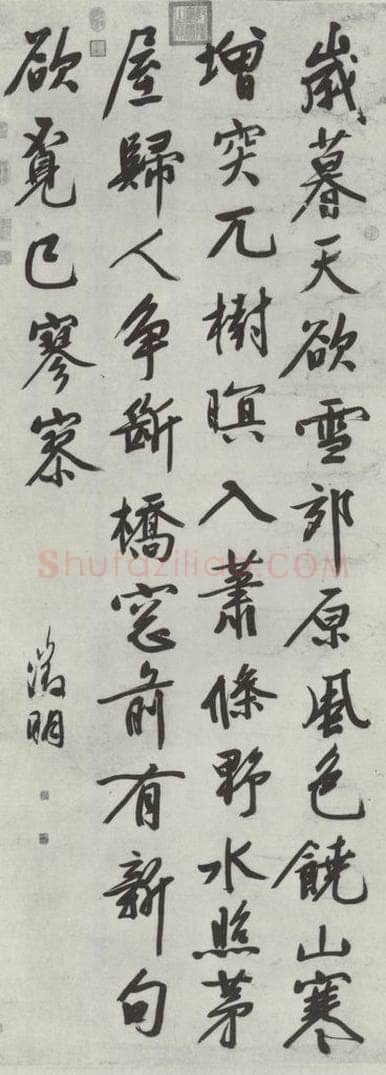 歲暮天欲雪郊原風色饒山寒
增突兀樹暝入蕭條野水照茅
屋歸人争斷橋窓前有新句
欲覓已寥寥
徵明
Shufazilian.COM